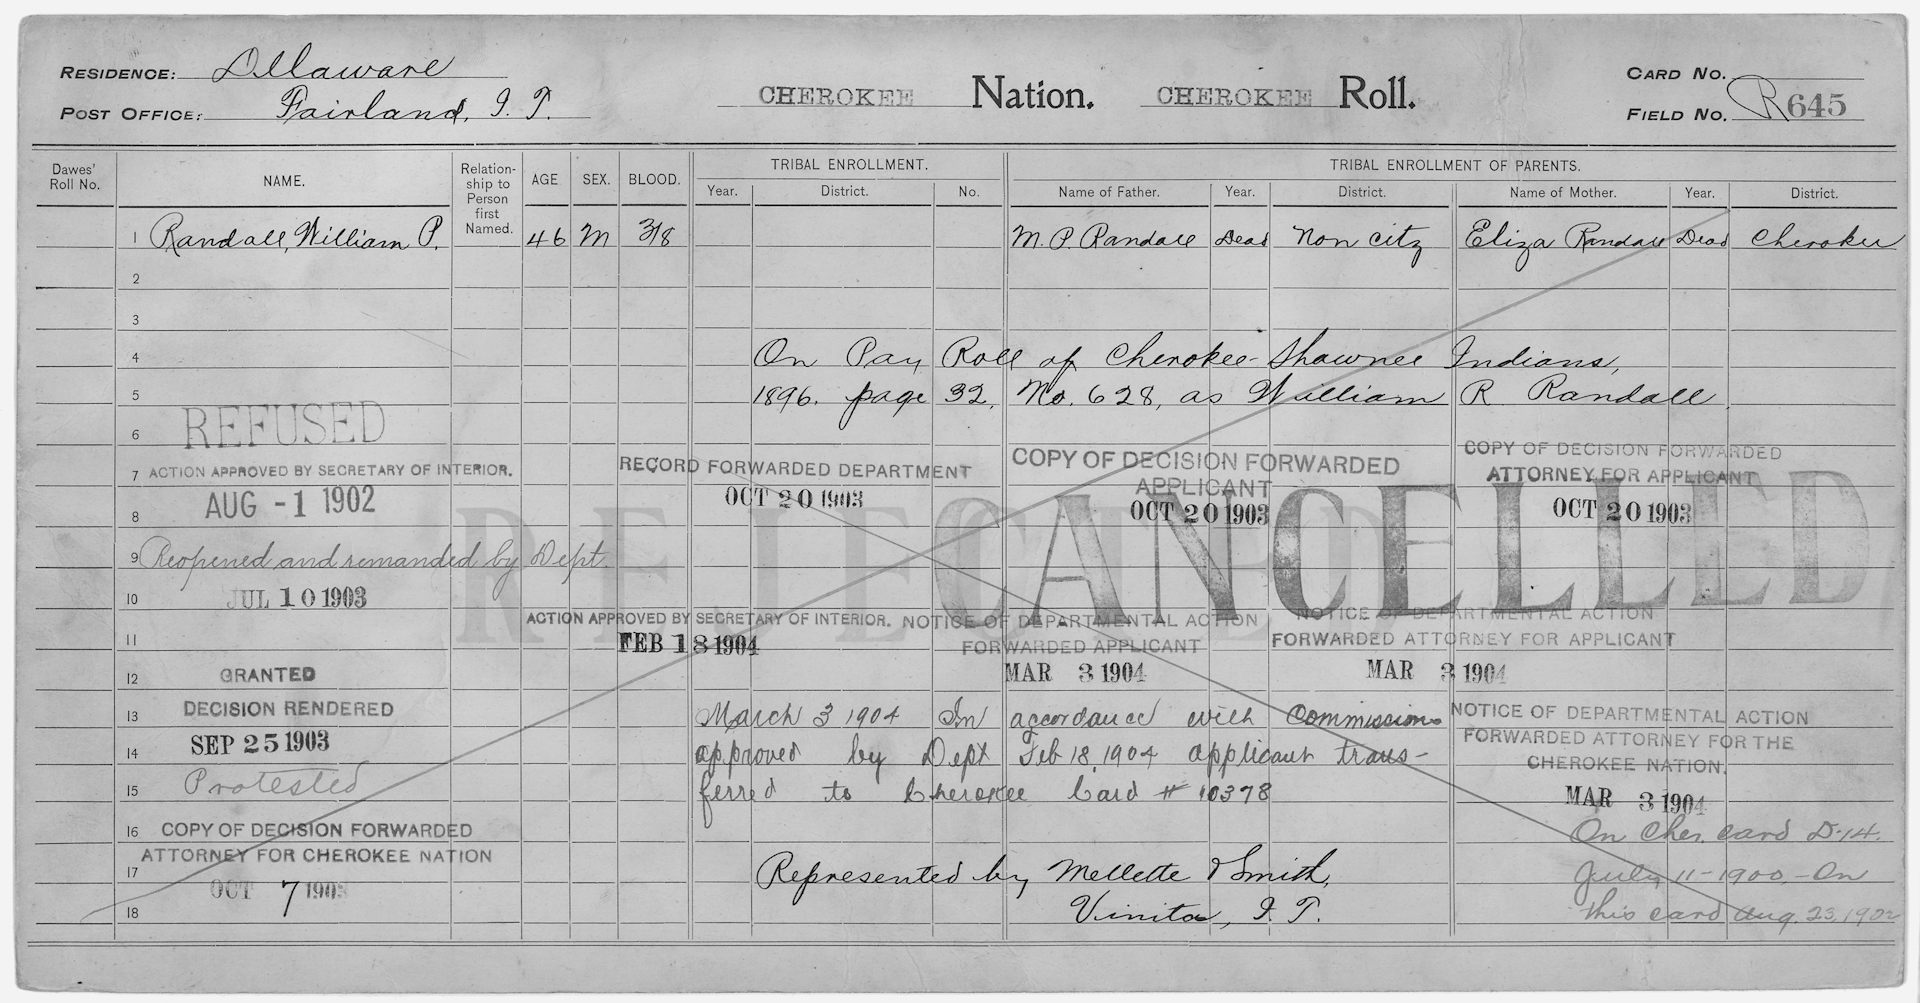 RESIDENCE: Delaware
POST OFFICE: Fairland, I. T.
CHEROKEE Nation. CHEROKEE Roll.
CARD NO.
FIELD NO. R645
Dawes' Roll No.
NAME.
Relationship to Person first Named.
AGE
SEX.
BLOOD.
TRIBAL ENROLLMENT.
Year. District. No.
TRIBAL ENROLLMENT OF PARENTS.
Name of Father. Year. District. Name of Mother. Year. District.
1 Randall, William P. 46 M 3/8 M. P. Randall Dead Non citz Eliza Randall Dead Cherokee
2
3
4 On Pay Roll of Cherokee-Shawnee Indians,
5 1896. page 32, No. 628, as William R Randall
6 REFUSED
7 ACTION APPROVED BY SECRETARY OF INTERIOR.
8 AUG -1 1902
RECORD FORWARDED DEPARTMENT
OCT 20 1903
COPY OF DECISION FORWARDED
APPLICANT
OCT 20 1903
COPY OF DECISION FORWARDED
ATTORNEY FOR APPLICANT
OCT 20 1903
REJECTED
CANCELLED
9 Reopened and remanded by Dept.
10 JUL 10 1903
11
ACTION APPROVED BY SECRETARY OF INTERIOR.
FEB 18 1904
NOTICE OF DEPARTMENTAL ACTION
FORWARDED APPLICANT
MAR 3 1904
NOTICE OF DEPARTMENTAL ACTION
FORWARDED ATTORNEY FOR APPLICANT
MAR 3 1904
12 GRANTED
13 DECISION RENDERED
14 SEP 25 1903
15 Protested
March 3 1904 In accordance with Commission
approved by Dept Feb 18, 1904 applicant trans-
ferred to Cherokee Card # 10378
NOTICE OF DEPARTMENTAL ACTION
FORWARDED ATTORNEY FOR THE
CHEROKEE NATION.
MAR 3 1904
16 COPY OF DECISION FORWARDED
ATTORNEY FOR CHEROKEE NATION
17
OCT 7 1903
18
Represented by Mellette & Smith,
Vinita, I. T.
On Cher. card D-14.
July 11-1900,-On
this card Aug. 23, 1902